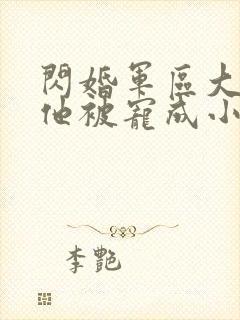 閃婚軍區大
他被寵成小
李艷